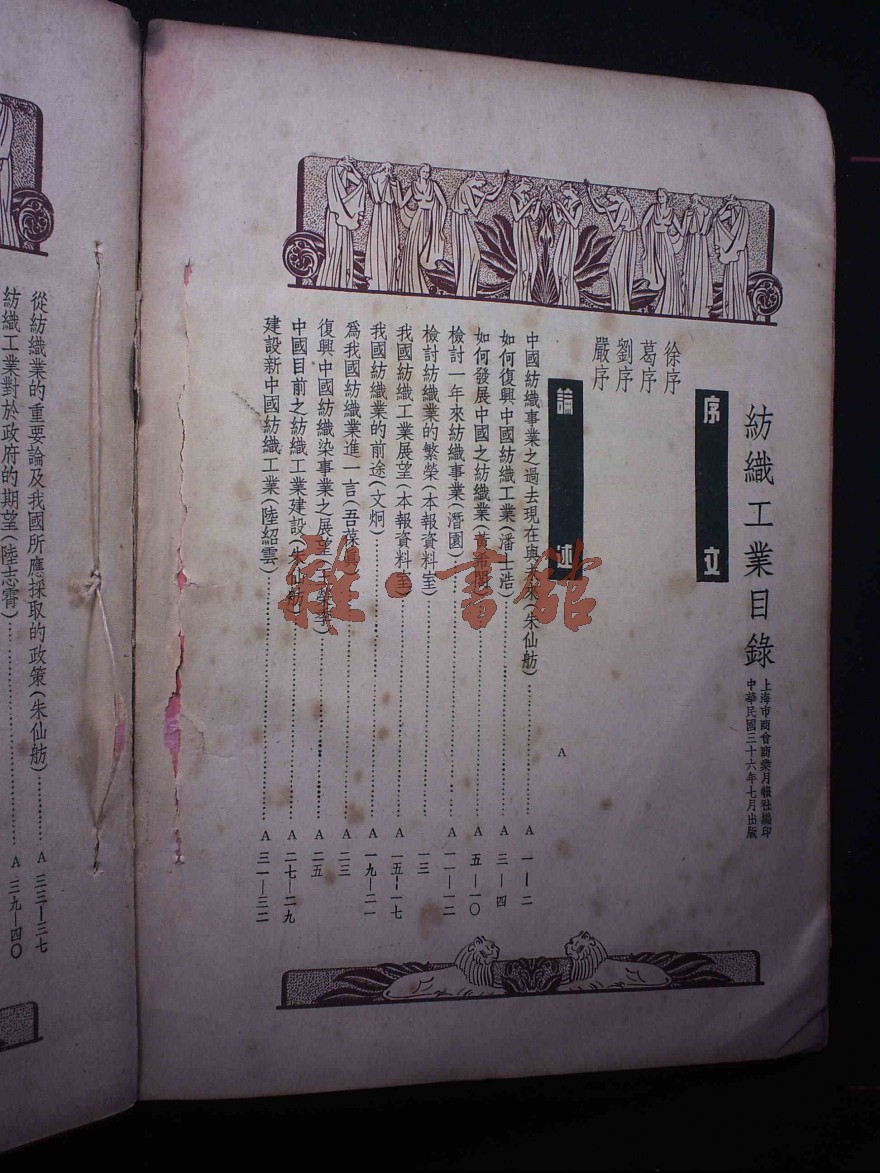 紡織工業目錄
上海市商會商業月報社編印
中華民國三十六年七月出版
序文
徐序
葛序
劉序
嚴序
論述
A
中國紡織事業之過去現在與未來(朱仙舫)……A 一—二
如何復興中國紡織工業(潘士浩)……A 三—四
如何發展中國之紡織業(黃希閣)……A 五—一〇
檢討一年來紡織事業(潛園)……A 一一—一二
檢討紡織業的繁榮(本報資料室)……一三
我國紡織工業展望(本報資料室)……A 一五—一七
我國紡織業的前途(文炯)……A 一九—二一
爲我國紡織業進一言(吾葆真)……A 二三
復興中國紡織染事業之展望……A 二五
中國目前之紡織工業建設(朱仙舫)……A 二七—二九
建設新中國紡織工業(陸紹雲)……A 三一—三二
從紡織業的重要論及我國所應採取的政策(朱仙舫)……A 三三—三七
紡織工業對於政府的期望(陸志霄)……A 三九—四〇
雜·書館